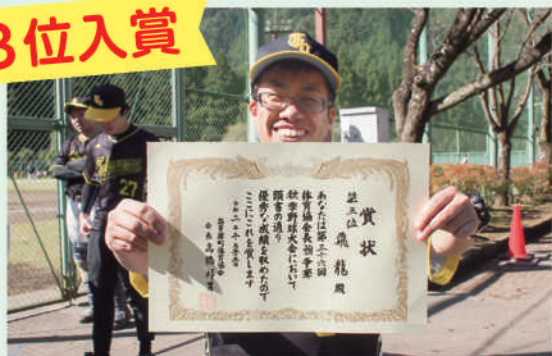 3位入賞
賞状
第三位 飛龍殿
あなたは第三十六回
体育協会長旗争奪
秋季野球大会において
頭書の通り
優秀な成績を収めたので
ここにこれを賞します
27